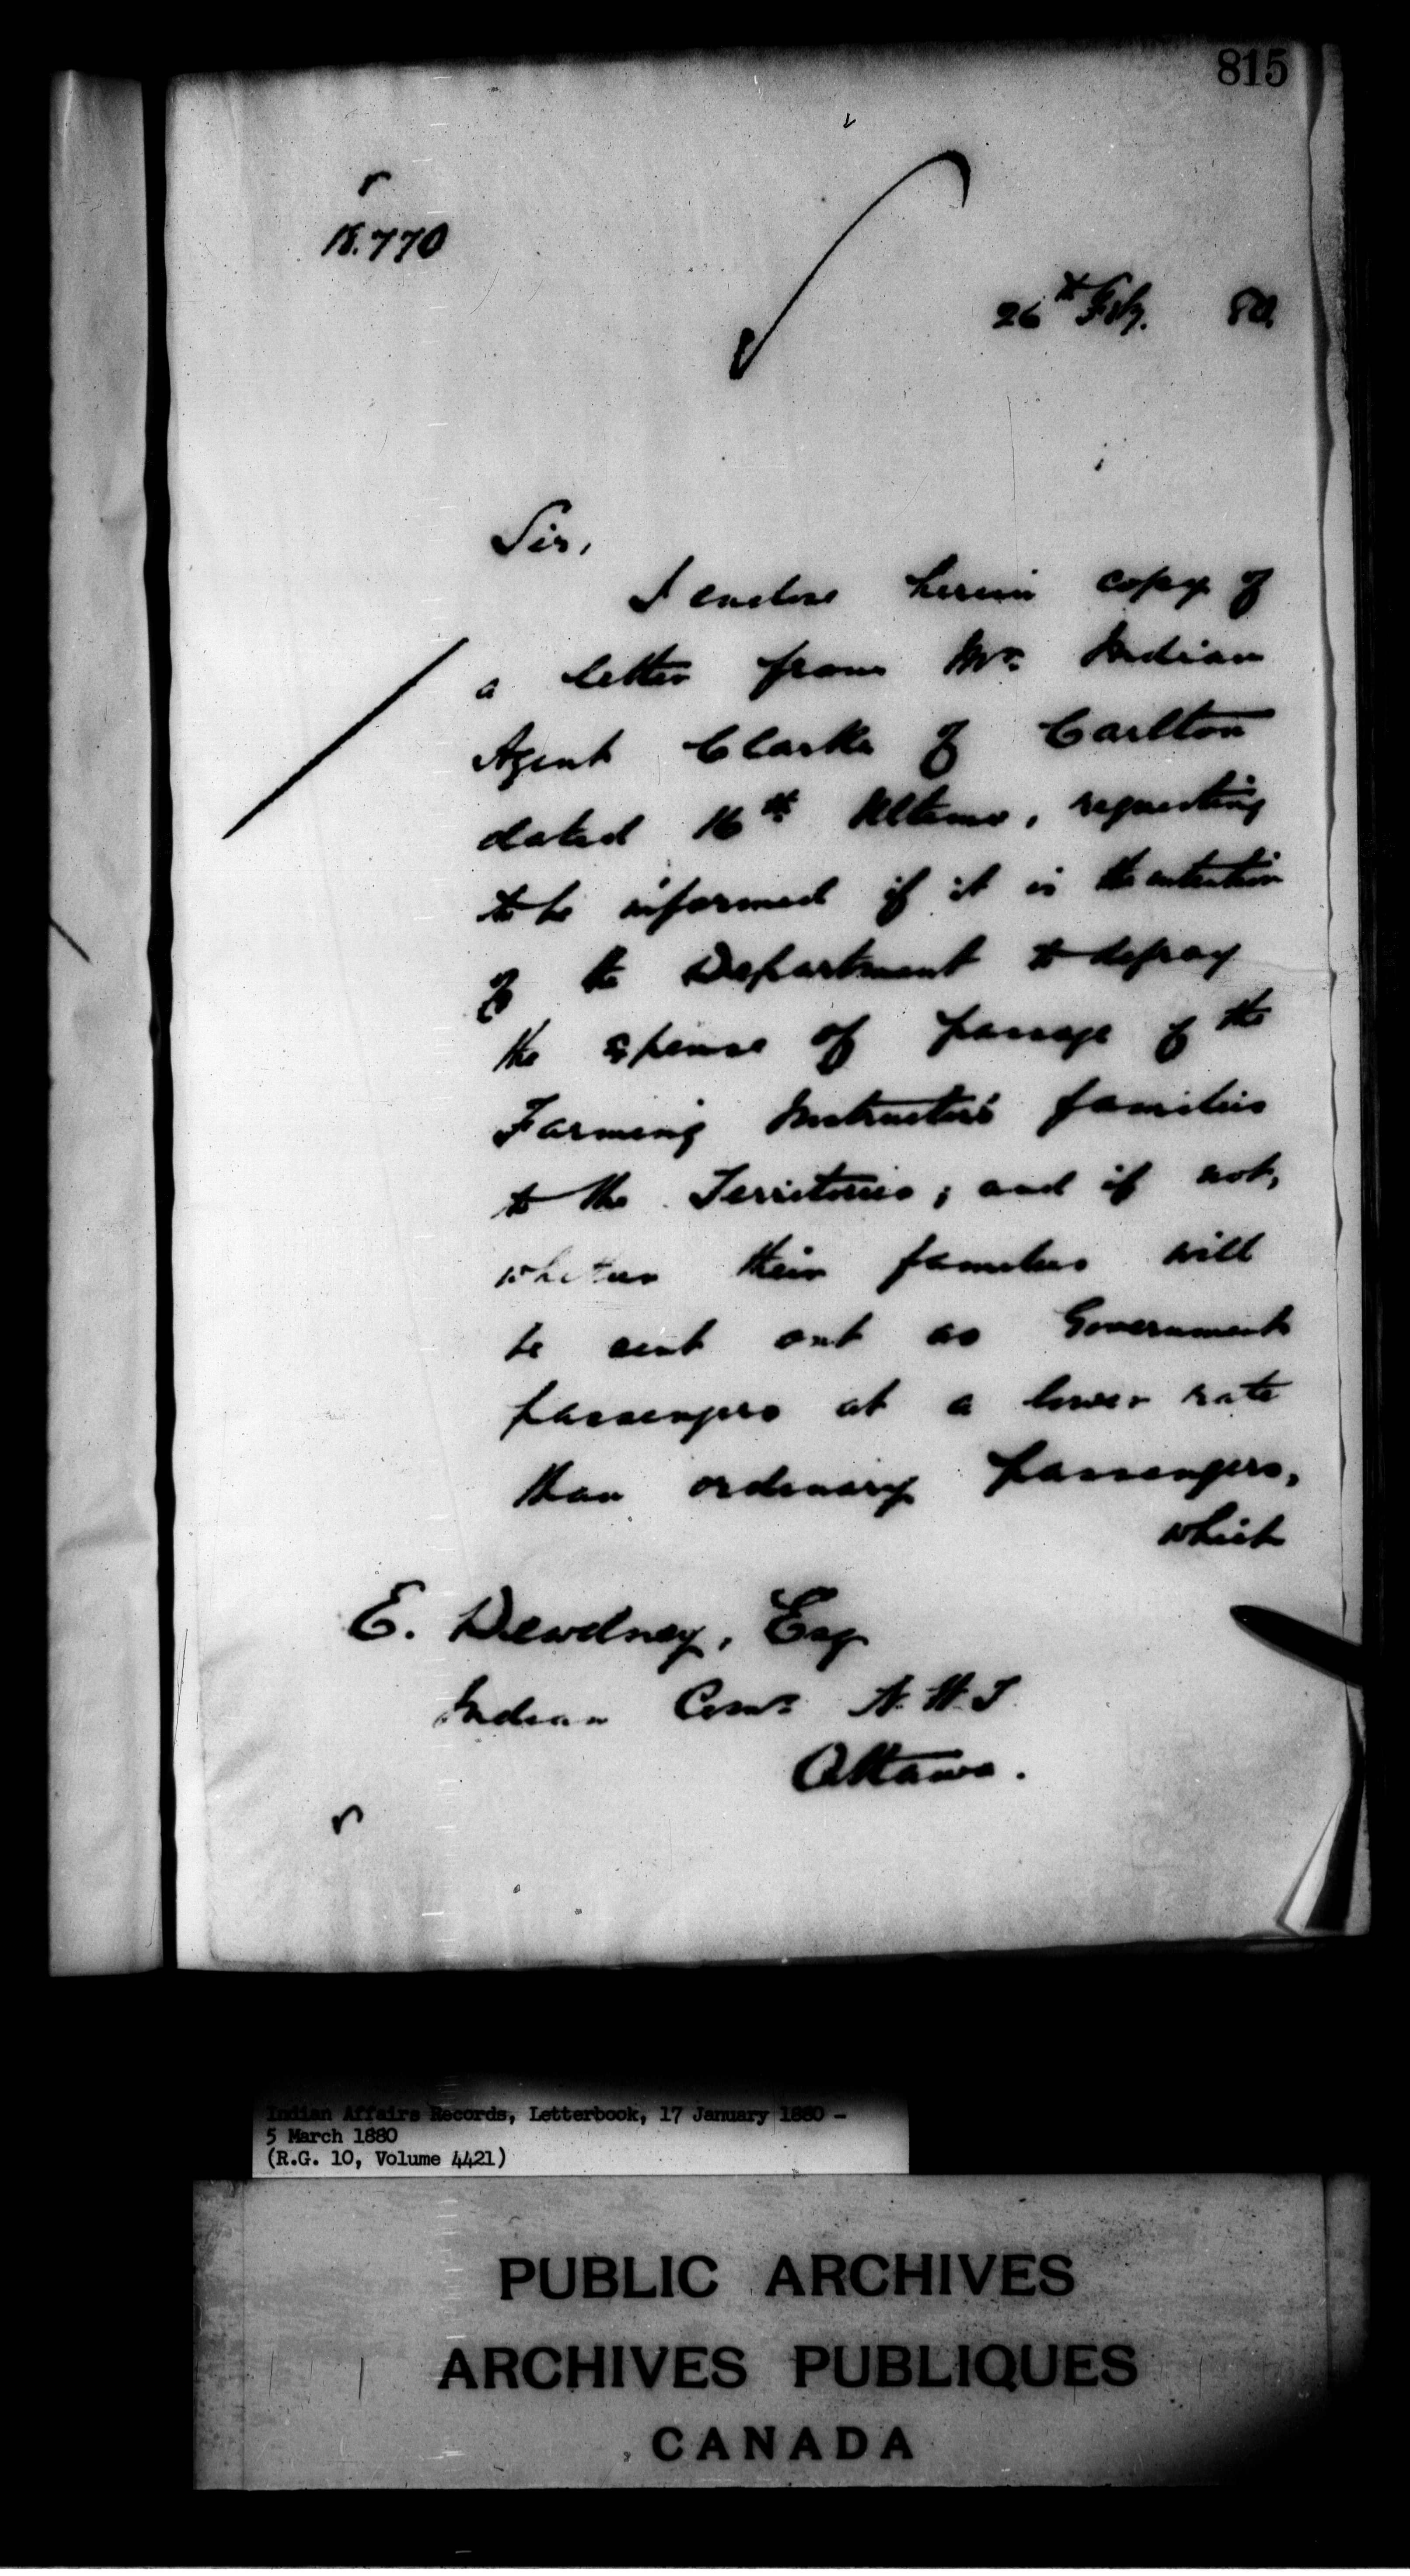 815
18.770
26th Feby. 80.
Sir,
I enclose herein copy of
a letter from Mr. Indian
Agent Clarke of Carlton
dated 16th Ultimo, requesting
to be informed if it is the intention
of the Department to defray
the expense of passage of the
Farming Instructors' families
to the Territories; and if not,
whether their families will
be sent out as Government
passengers at a lower rate
than ordinary passengers,
which
E. Dewdney, Esq
Indian Comr. N.W.T.
Ottawa.
Indian Affairs Records, Letterbook, 17 January 1880 -
5 March 1880
(R.G. 10, Volume 4421)
PUBLIC ARCHIVES
ARCHIVES PUBLIQUES
CANADA